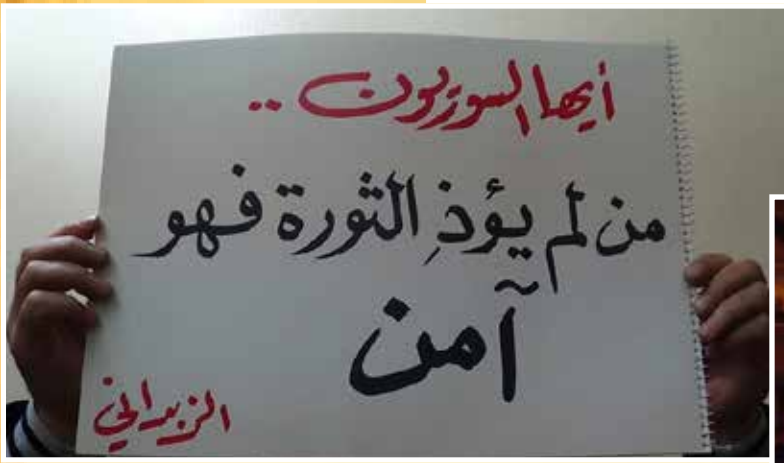 أيها السوريون ..
من لم يؤذِ الثورة فهو
آمن
الزبداني